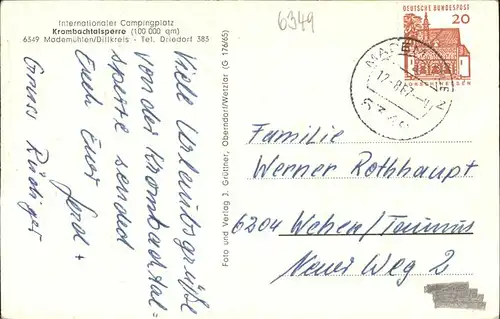 Internationaler Campingplatz
Krombachtalsperre (100 000 qm)
6349 Mademühlen/Dillkreis - Tel. Driedorf 383
6349
DEUTSCHE BUNDESPOST
20
LORSCH/HESSEN
12.-8.67
6349
Viele Urlaubsgrüße
von der Krombachtal=
sperre sendet
Euch Euer
Gruss Rüdiger
Foto und Verlag J. Grüttner, Oberndorf/Wetzlar (G 176/65)
Familie
Werner Rothhaupt
6204 Wehen/Taunus
Neuer Weg 2